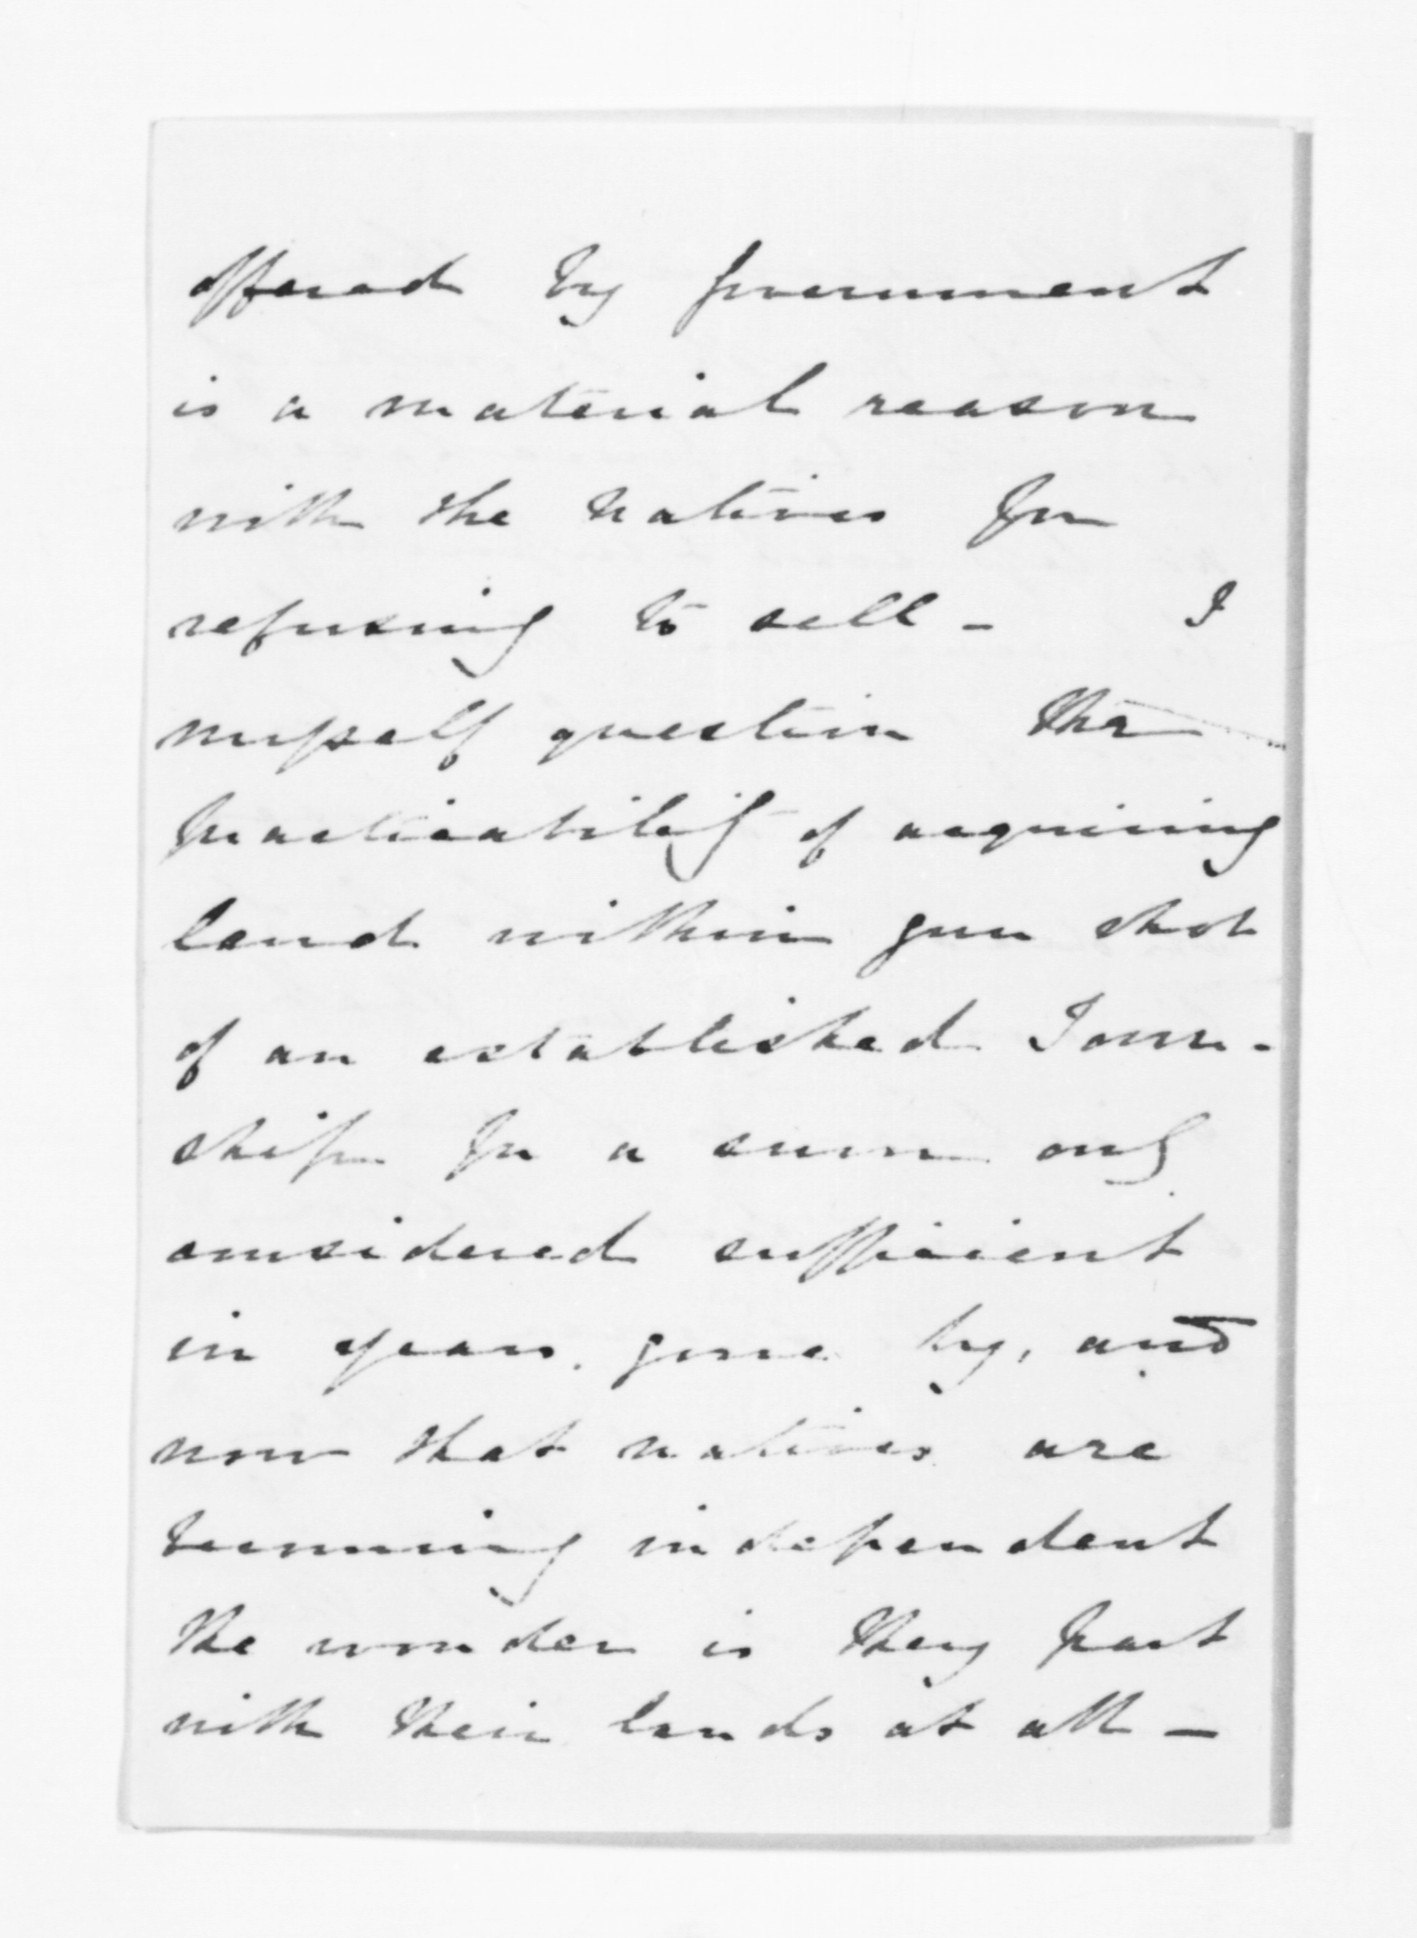 offered by Government
is a material reason
with the natives for
refusing to sell - I
myself question the
practicability of acquiring
land within gun shot
of an established Town-
ship for a sum only
considered sufficient
in years gone by, and
now that natives are
becoming independent
the wonder is they part
with their lands at all -